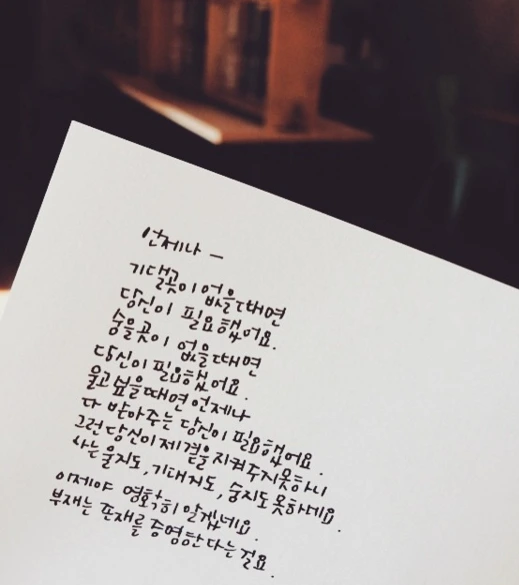 언제나 –
기댈곳이 없을때면
당신이 필요했어요.
숨을곳이 없을때면
당신이 필요했어요.
울고싶을때면 언제나
다 받아주는 당신이 필요했어요.
그런 당신이 제 곁을 지켜주지못하니
나는 울지도, 기대지도, 숨지도 못하네요.
이제야 명확히 알겠네요.
부재는 존재를 증명한다는걸요.